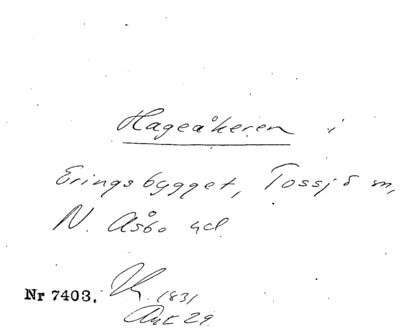 Hageåkeren i
Eringsbygget, Tossjö sn,
N. Åsbo hd.
Nr 7403. 1831
Akt 29.